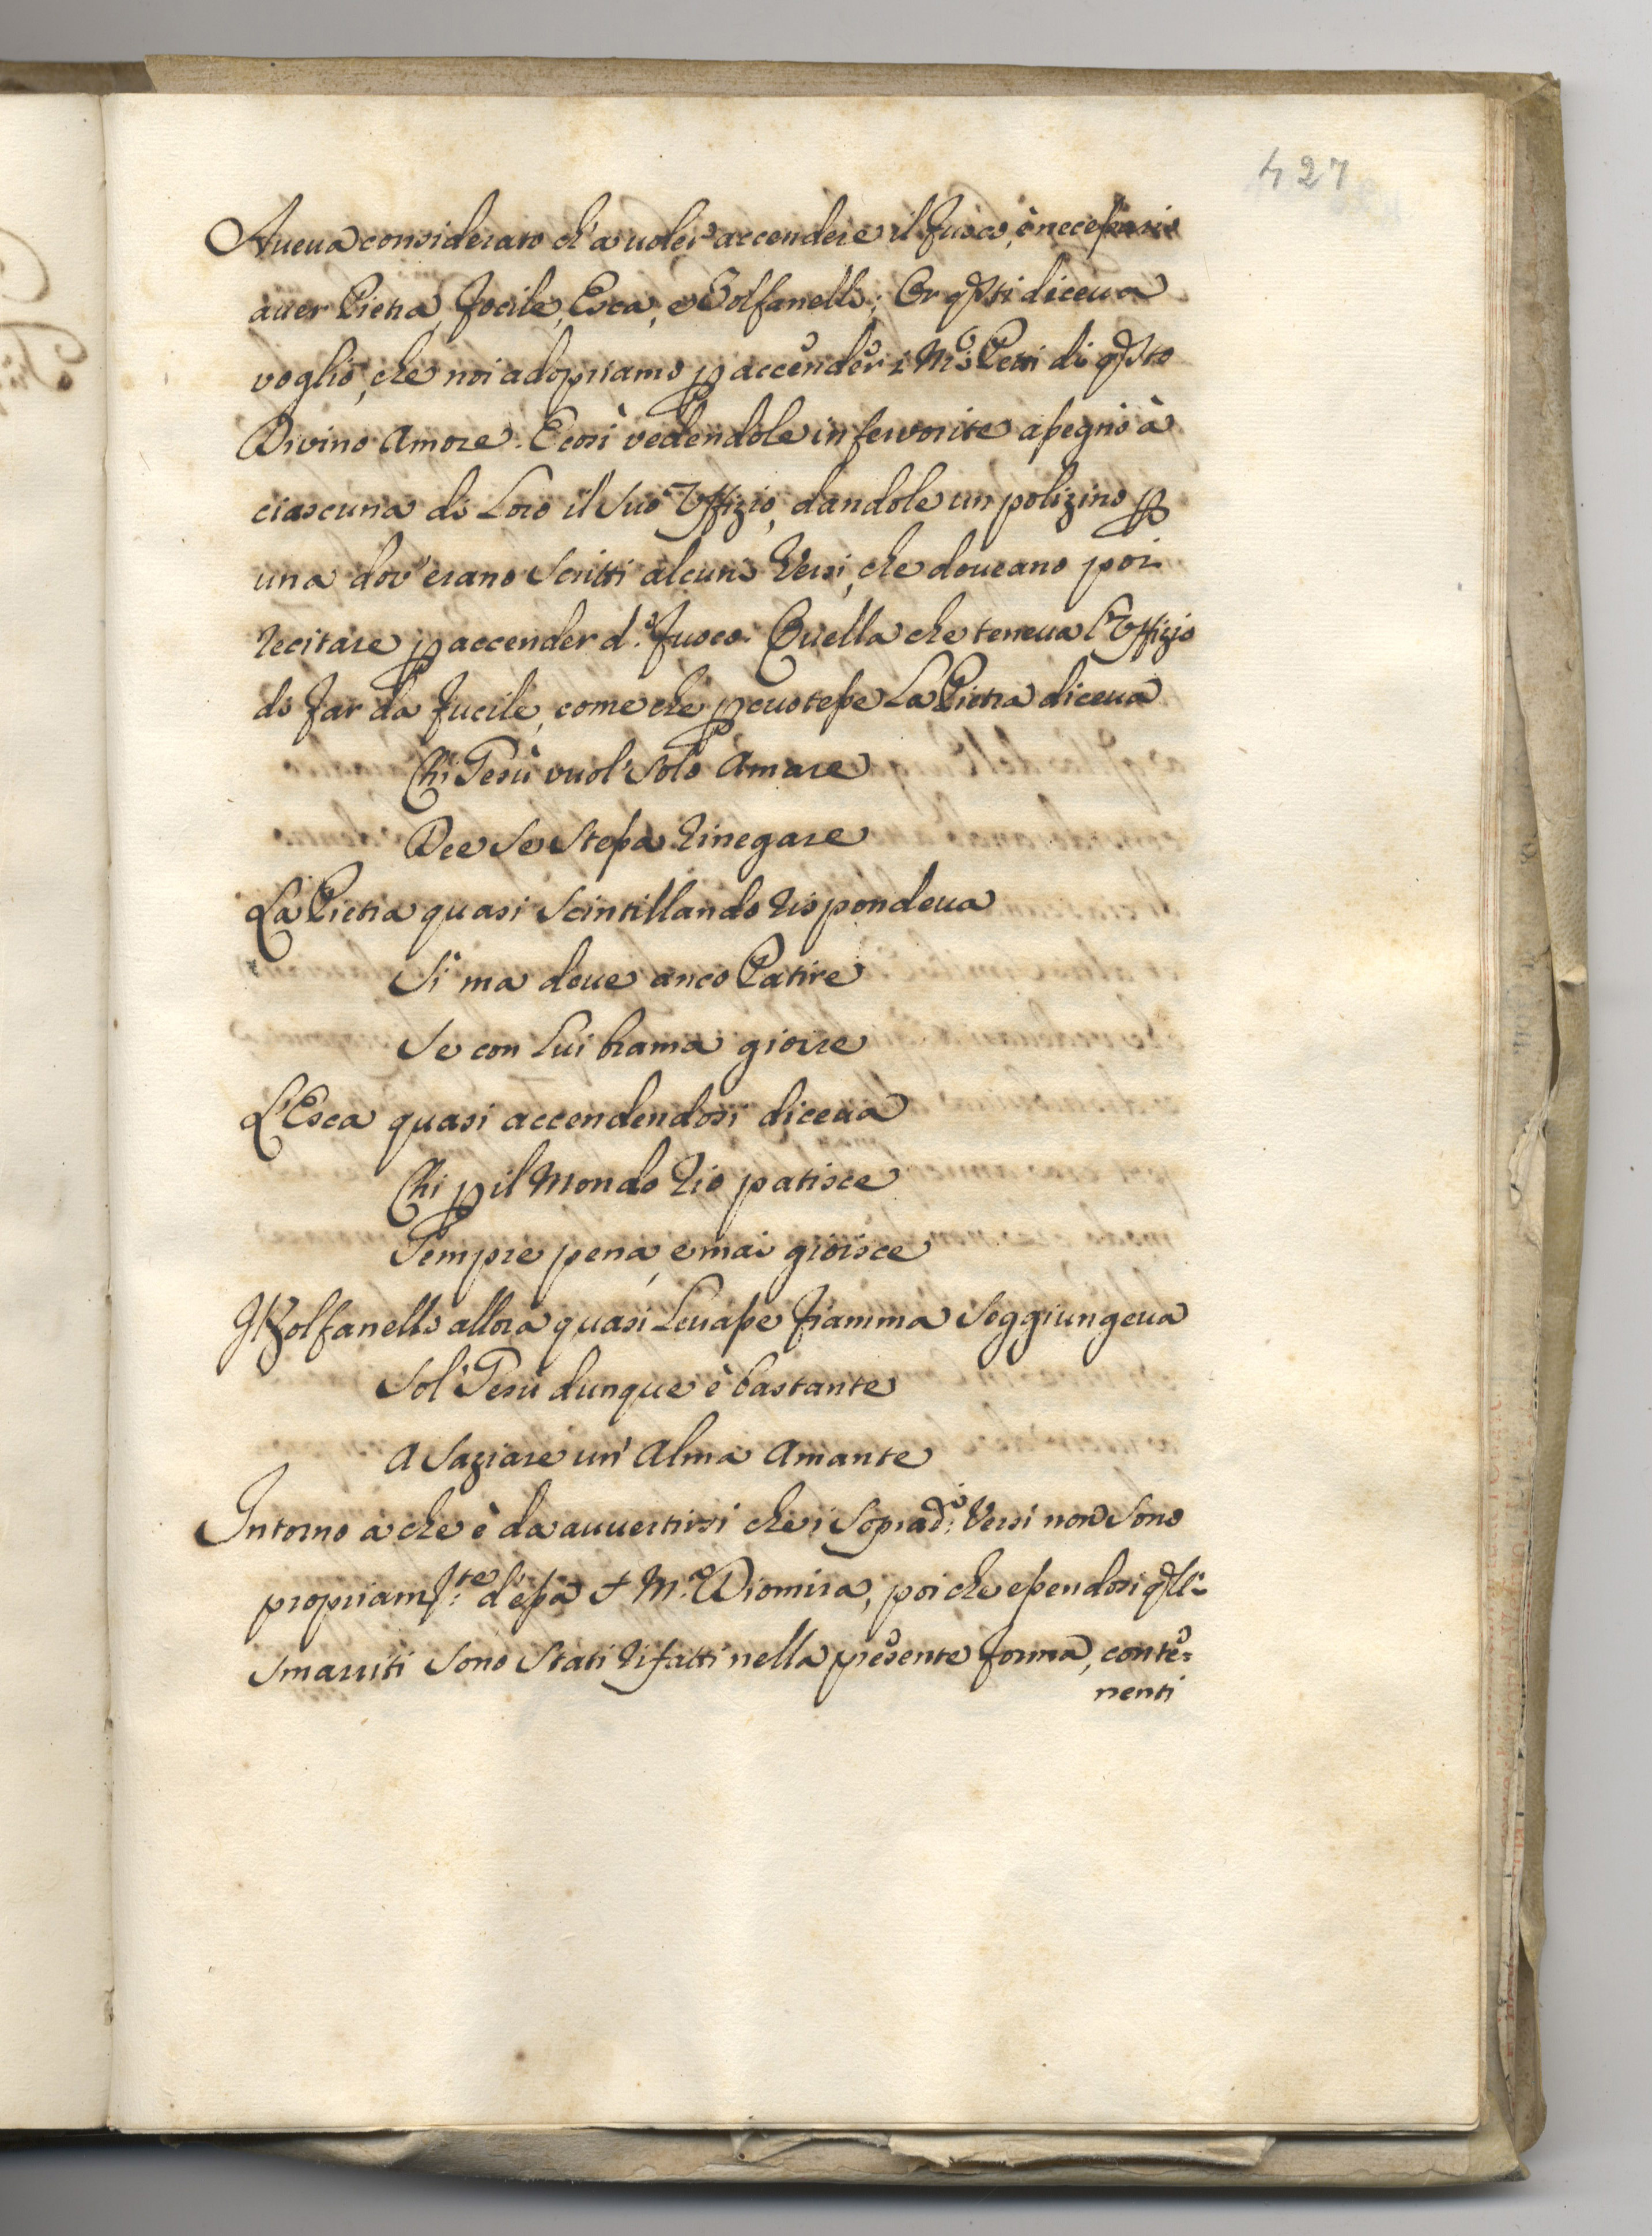 427
Aueua considerato ch'a uoler accendere il fuoco, è necessario
auer Pietra, focile, Esca, e Solfanelli; Or qsti diceua
voglio, che noi adopriamo p accender i Nri Petti di qsto
Divino Amore. E così vedendole infervorite assegnò à
ciascuna di Loro il suo Vffizio, dandole un polizino p
una dov'erano scritti alcuni Versi, che doueano poi
recitare p accender d.o fuoco. Quella che teneua l'Vffizio
di far da fucile, come che pcuotesse La Pietra diceua
Chi Gesù vuol' solo Amare
Dee se stessa rinegare
La Pietra quasi scintillando rispondeua
Si ma deue anco Patire
Se con Lui brama gioire
L'Esca quasi accendendosi diceua
Chi p il Mondo rio patisce
Sempre pena, e mai gioisce
Il Zolfanello allora quasi Leuasse fiamma soggiungeua
Sol' Gesù dunque è bastante
A saziare un' Alma Amante
Intorno a che è da auuertirsi che i soprad.i Versi non sono
propriam.te d'essa S M.e Diomira, poi che essendosi qlli
smarriti sono stati rifatti nella presente forma, conte=
nenti